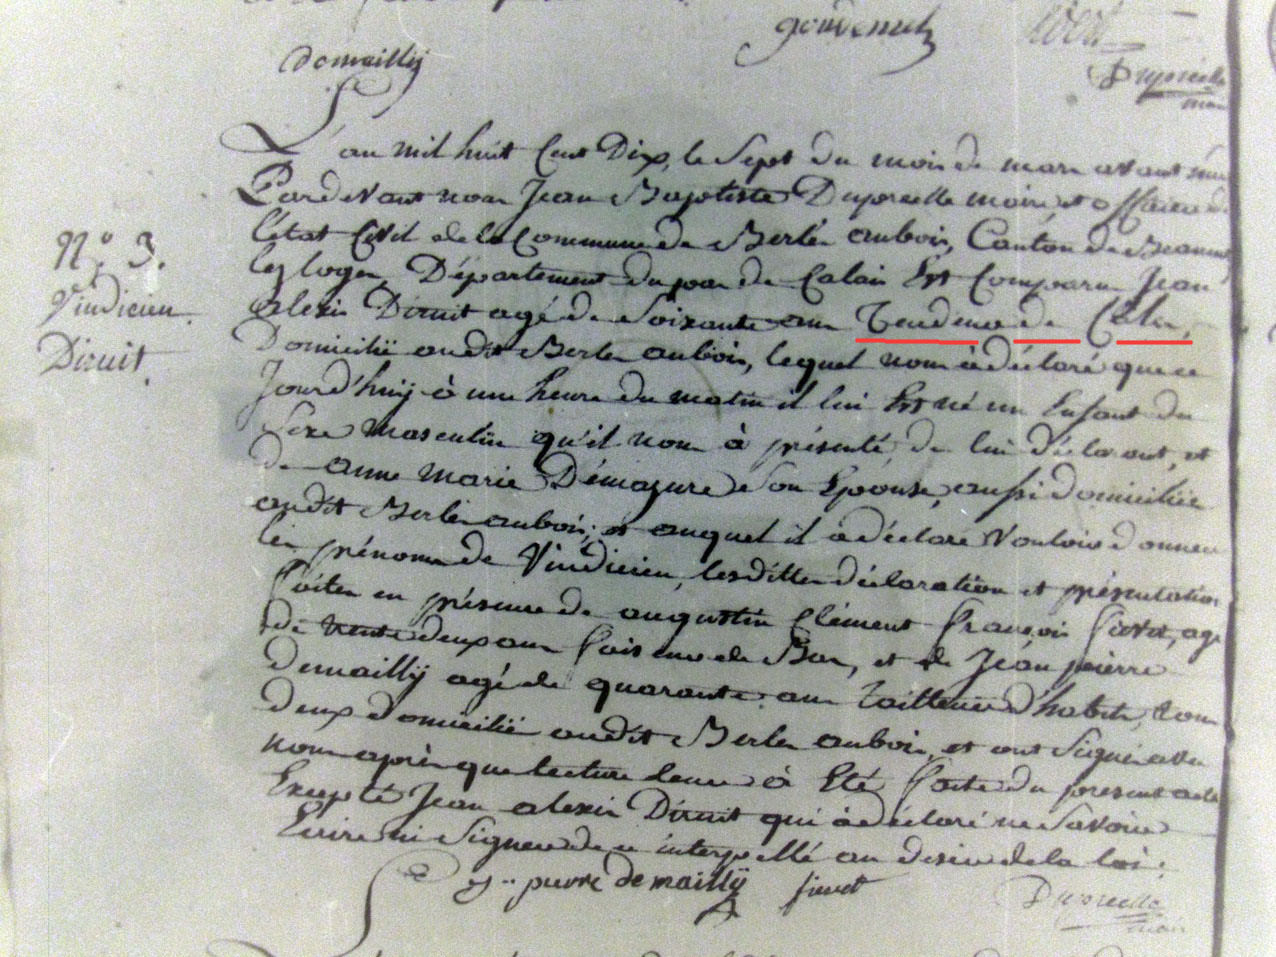 gouvernet
demailly
Dupreelle
maire
L'an mil huit Cent Dix, le Sept du mois de mars avant midi
Pardevant nous Jean Baptiste Dupreelle maire et officier de
l'état Civil de la Commune de Berles aubois, Canton de Beaumetz
les loges, Département du pas de Calais Est Comparu Jean
alexis Diruit agé de Soixante ans de
Domicilié audit Berles aubois, lequel nous à déclaré que ce
Jourd'huy à une heure du matin il lui Est né un Enfant du
Sexe masculin qu'il nous à présenté, de lui déclarant, et
de anne marie Démazure Son Epouse, aussi domiciliée
audit Berles aubois, et auquel il à déclaré Vouloir donner
les prénoms de Vindicien, lesdittes déclaration et présentation
faites en présence de augustin Clément françois fievet, agé
de trente deux ans faiseur de Bas, et de Jean pierre
Demailly agé de quarante ans Tailleur d'habits, tous
deux domicilié audit Berles aubois, et ont Signé avec
nous après que lecture leur à Eté faite du présent acte
Excepté Jean alexis Diruit qui à déclaré ne Savoir
Ecrire ni Signer de ce interpellé au desir de la loi.
N.° 3.
Vindicien
Diruit.
j.. pierre demailly fievet
Dupreelle
maire